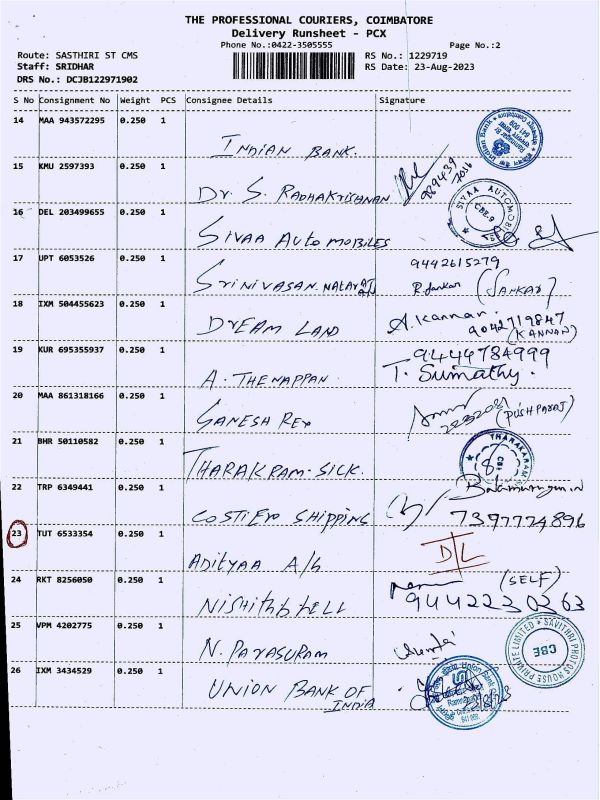 THE PROFESSIONAL COURIERS, COIMBATORE
Delivery Runsheet - PCX
Phone No.:0422-3505555 Page No.:2
Route: SASTHIRI ST CMS RS No.: 1229719
Staff: SRIDHAR RS Date: 23-Aug-2023
DRS No.: DCJB122971902
S No Consignment No Weight PCS Consignee Details Signature
14 MAA 943572295 0.250 1
INDIAN BANK.
Indian Bank
15 KMU 2597393 0.250 1
Dr. S. RADHAKRISHNAN
16 DEL 203499655 0.250 1
SIVAA AUTOMOBILES
SIVAA AUTOMOBILES CBE-9
17 UPT 6053526 0.250 1 9442615279
SRINIVASAN. NATARAJAN R. Sankar (SANKAR)
18 IXM 504455623 0.250 1 A. Kannan.
DREAM LAND 9042719847
(KANNAN)
19 KUR 695355937 0.250 1 9444784999
A. THENAPPAN T. Sumathy.
20 MAA 861318166 0.250 1
GANESH REX (PUSHPARAJ)
21 BHR 50110582 0.250 1
THARAKRAM. SILK.
22 TRP 6349441 0.250 1
COSTIERO SHIPPING 7397774896
23 TUT 6533354 0.250 1 D/L
ADITYAA A/G
24 RKT 8256050 0.250 1 (SELF)
9442230263
25 VPM 4202775 0.250 1
N. PARASURAM
SAVITHRI PHOTO HOUSE PRIVATE LIMITED CBE
26 IXM 3434529 0.250 1
UNION BANK OF
INDIA 23/8/23